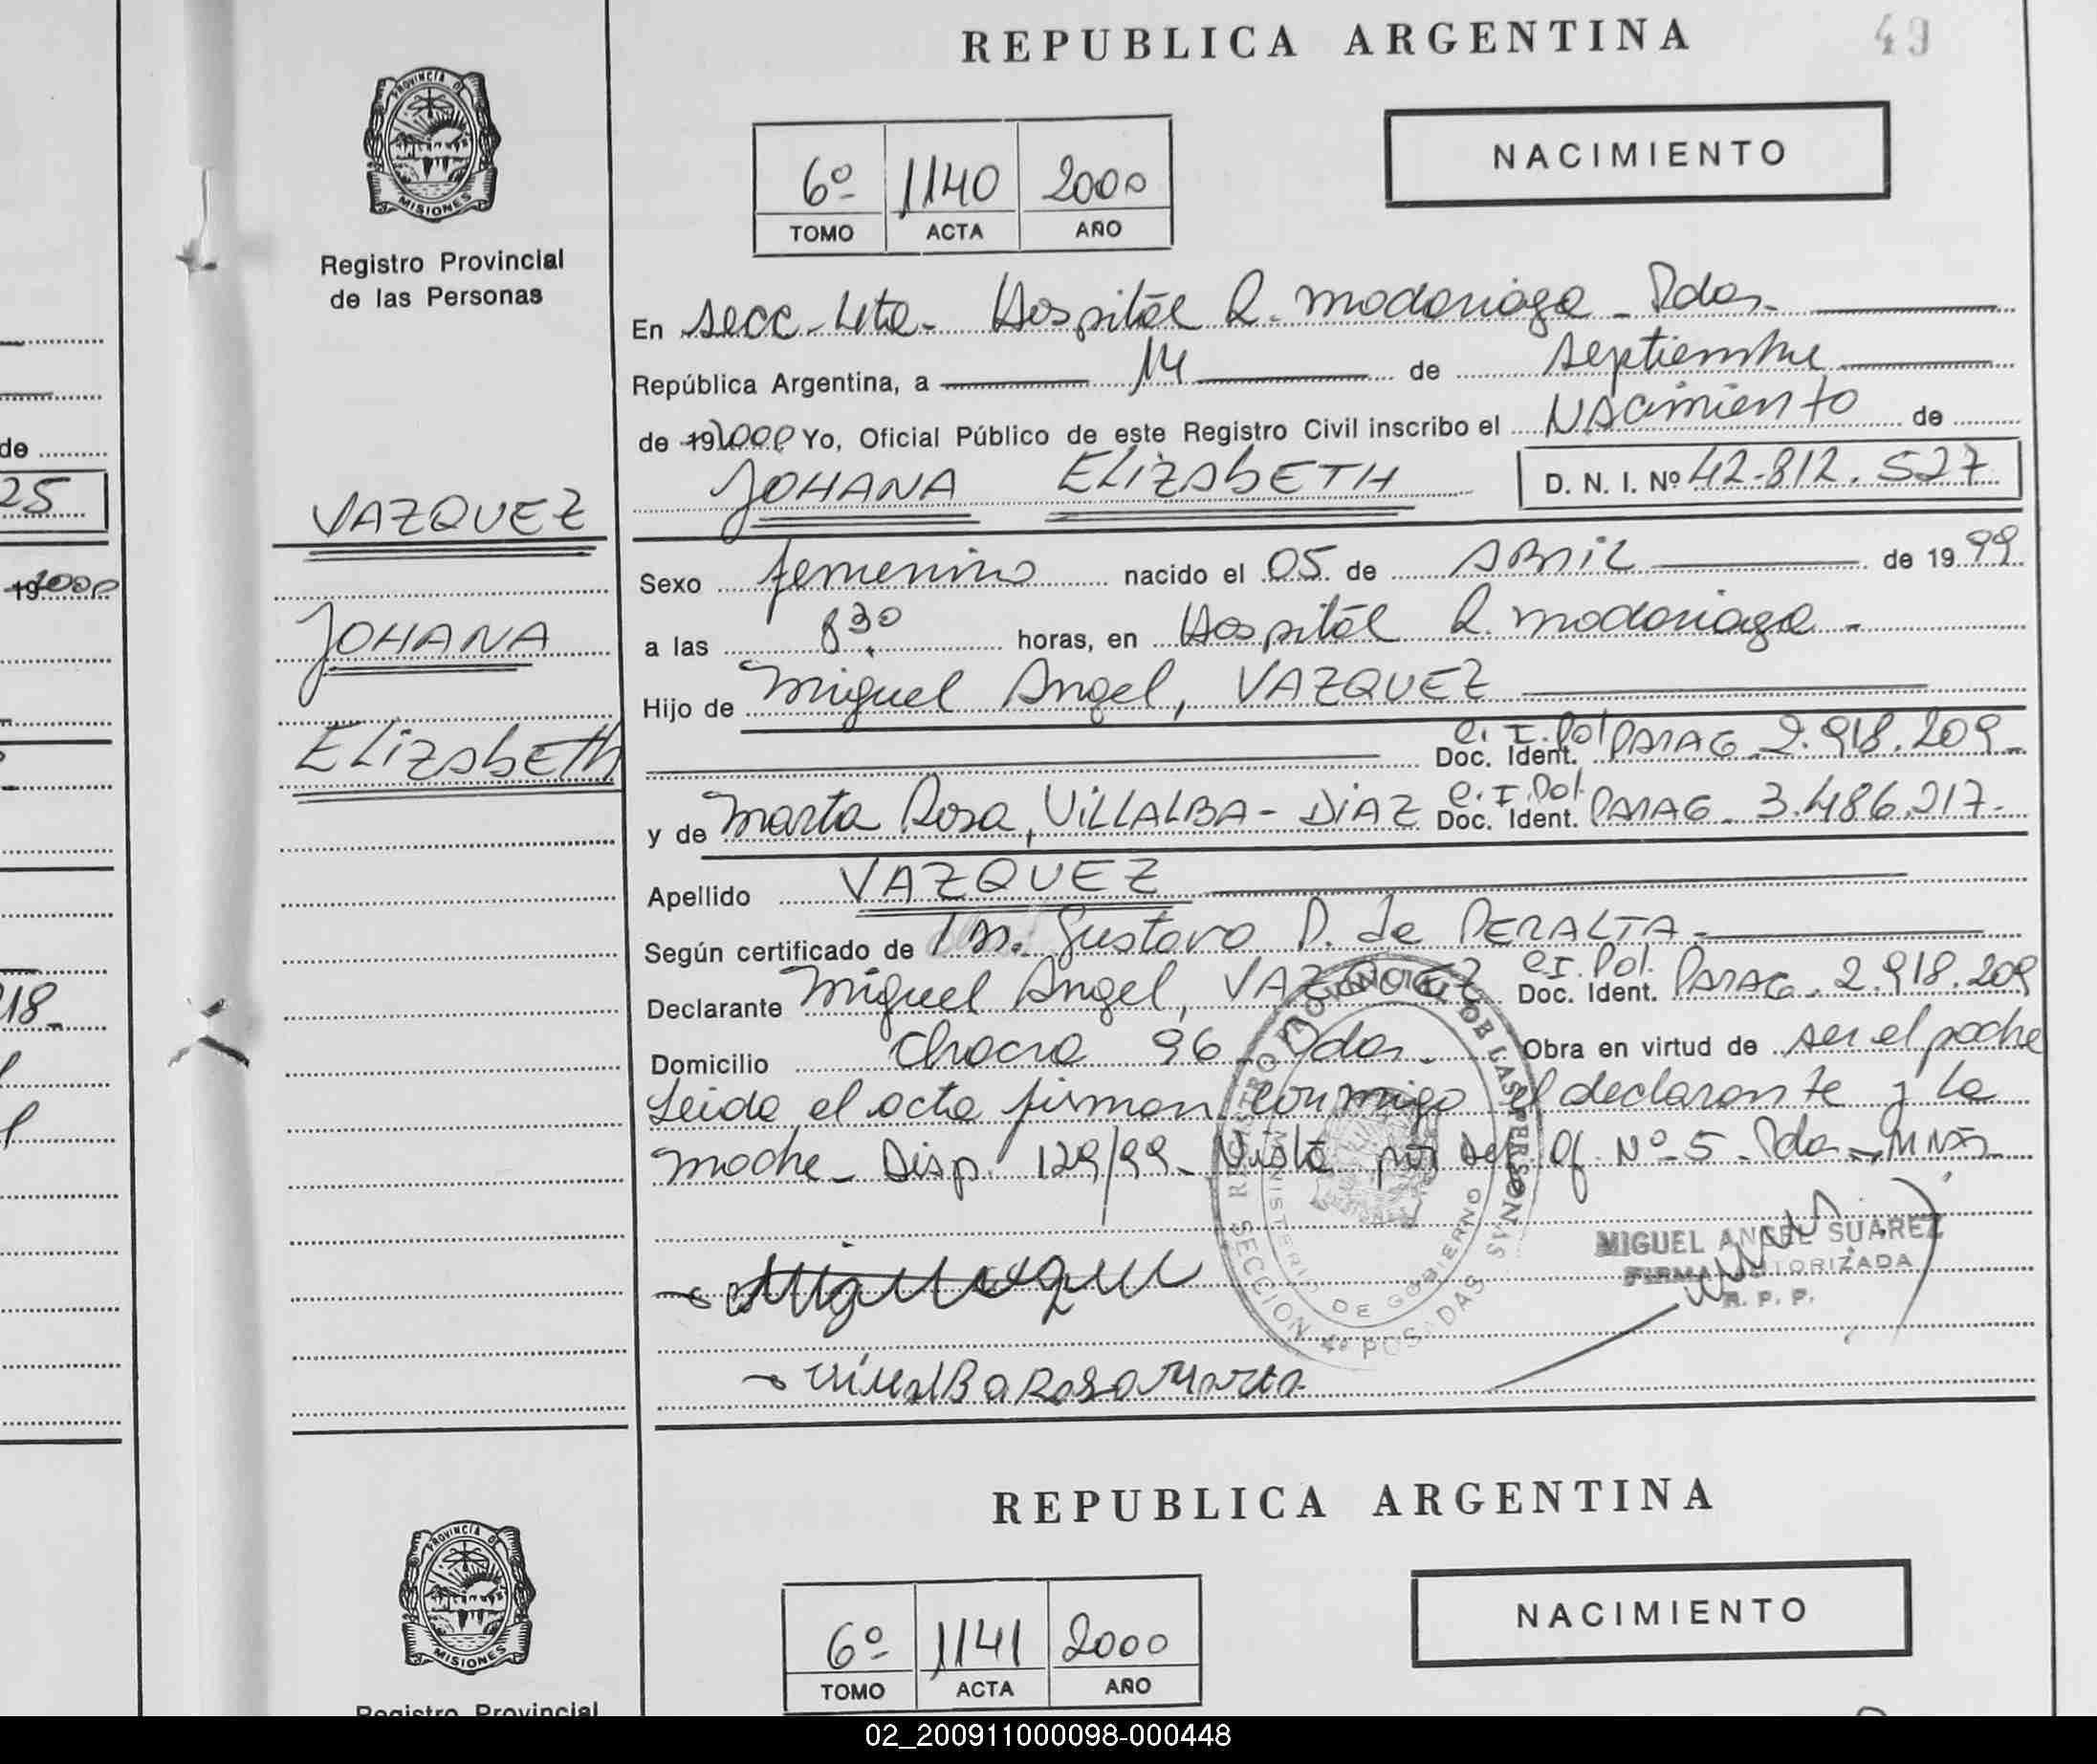 REPUBLICA ARGENTINA
49
PROVINCIA D
MISIONES
Registro Provincial
de las Personas
6º 1140 2000
TOMO ACTA AÑO
NACIMIENTO
En Secc. 4ta. Hospital R. Madariaga - Pdas.
República Argentina, a 14 de septiembre
de 192000 Yo, Oficial Público de este Registro Civil inscribo el Nacimiento de
JOHANA ELIZABETH D. N. I. Nº 42.812.527
VAZQUEZ
JOHANA
ELIZABETH
Sexo femenino nacido el 05 de ABRIL de 1999
a las 8 30 horas, en Hospital R. Madariaga -
Hijo de Miguel Angel, VAZQUEZ
C. I. Pol
Doc. Ident. PARAG 2.918.209
y de Marta Rosa, VILLALBA - DIAZ C. I. Pol. Doc. Ident. PARAG - 3.486.217-
Apellido VAZQUEZ
Según certificado de Gustavo D. de PERALTA -
Declarante Miguel Angel, VAZQUEZ C.I. Pol. Doc. Ident. PARAG. 2.918.209
Domicilio Chacra 96 - Pdas. Obra en virtud de ser el padre
Leida el acta firman conmigo el declarante y la
madre - Disp. 129/99 - Visto por Del. Of. Nº 5 - Pdas - MNES
REGISTRO PROVINCIAL DE LAS PERSONAS
MINISTERIO DE GOBIERNO
SECCION 4º POSADAS
MIGUEL ANGEL SUAREZ
FIRMA AUTORIZADA
R. P. P.
Villalba Rosa Marta
de
25
192000
18
REPUBLICA ARGENTINA
PROVINCIA D
MISIONES
6º 1141 2000
TOMO ACTA AÑO
NACIMIENTO
Registro Provincial
02_200911000098-000448